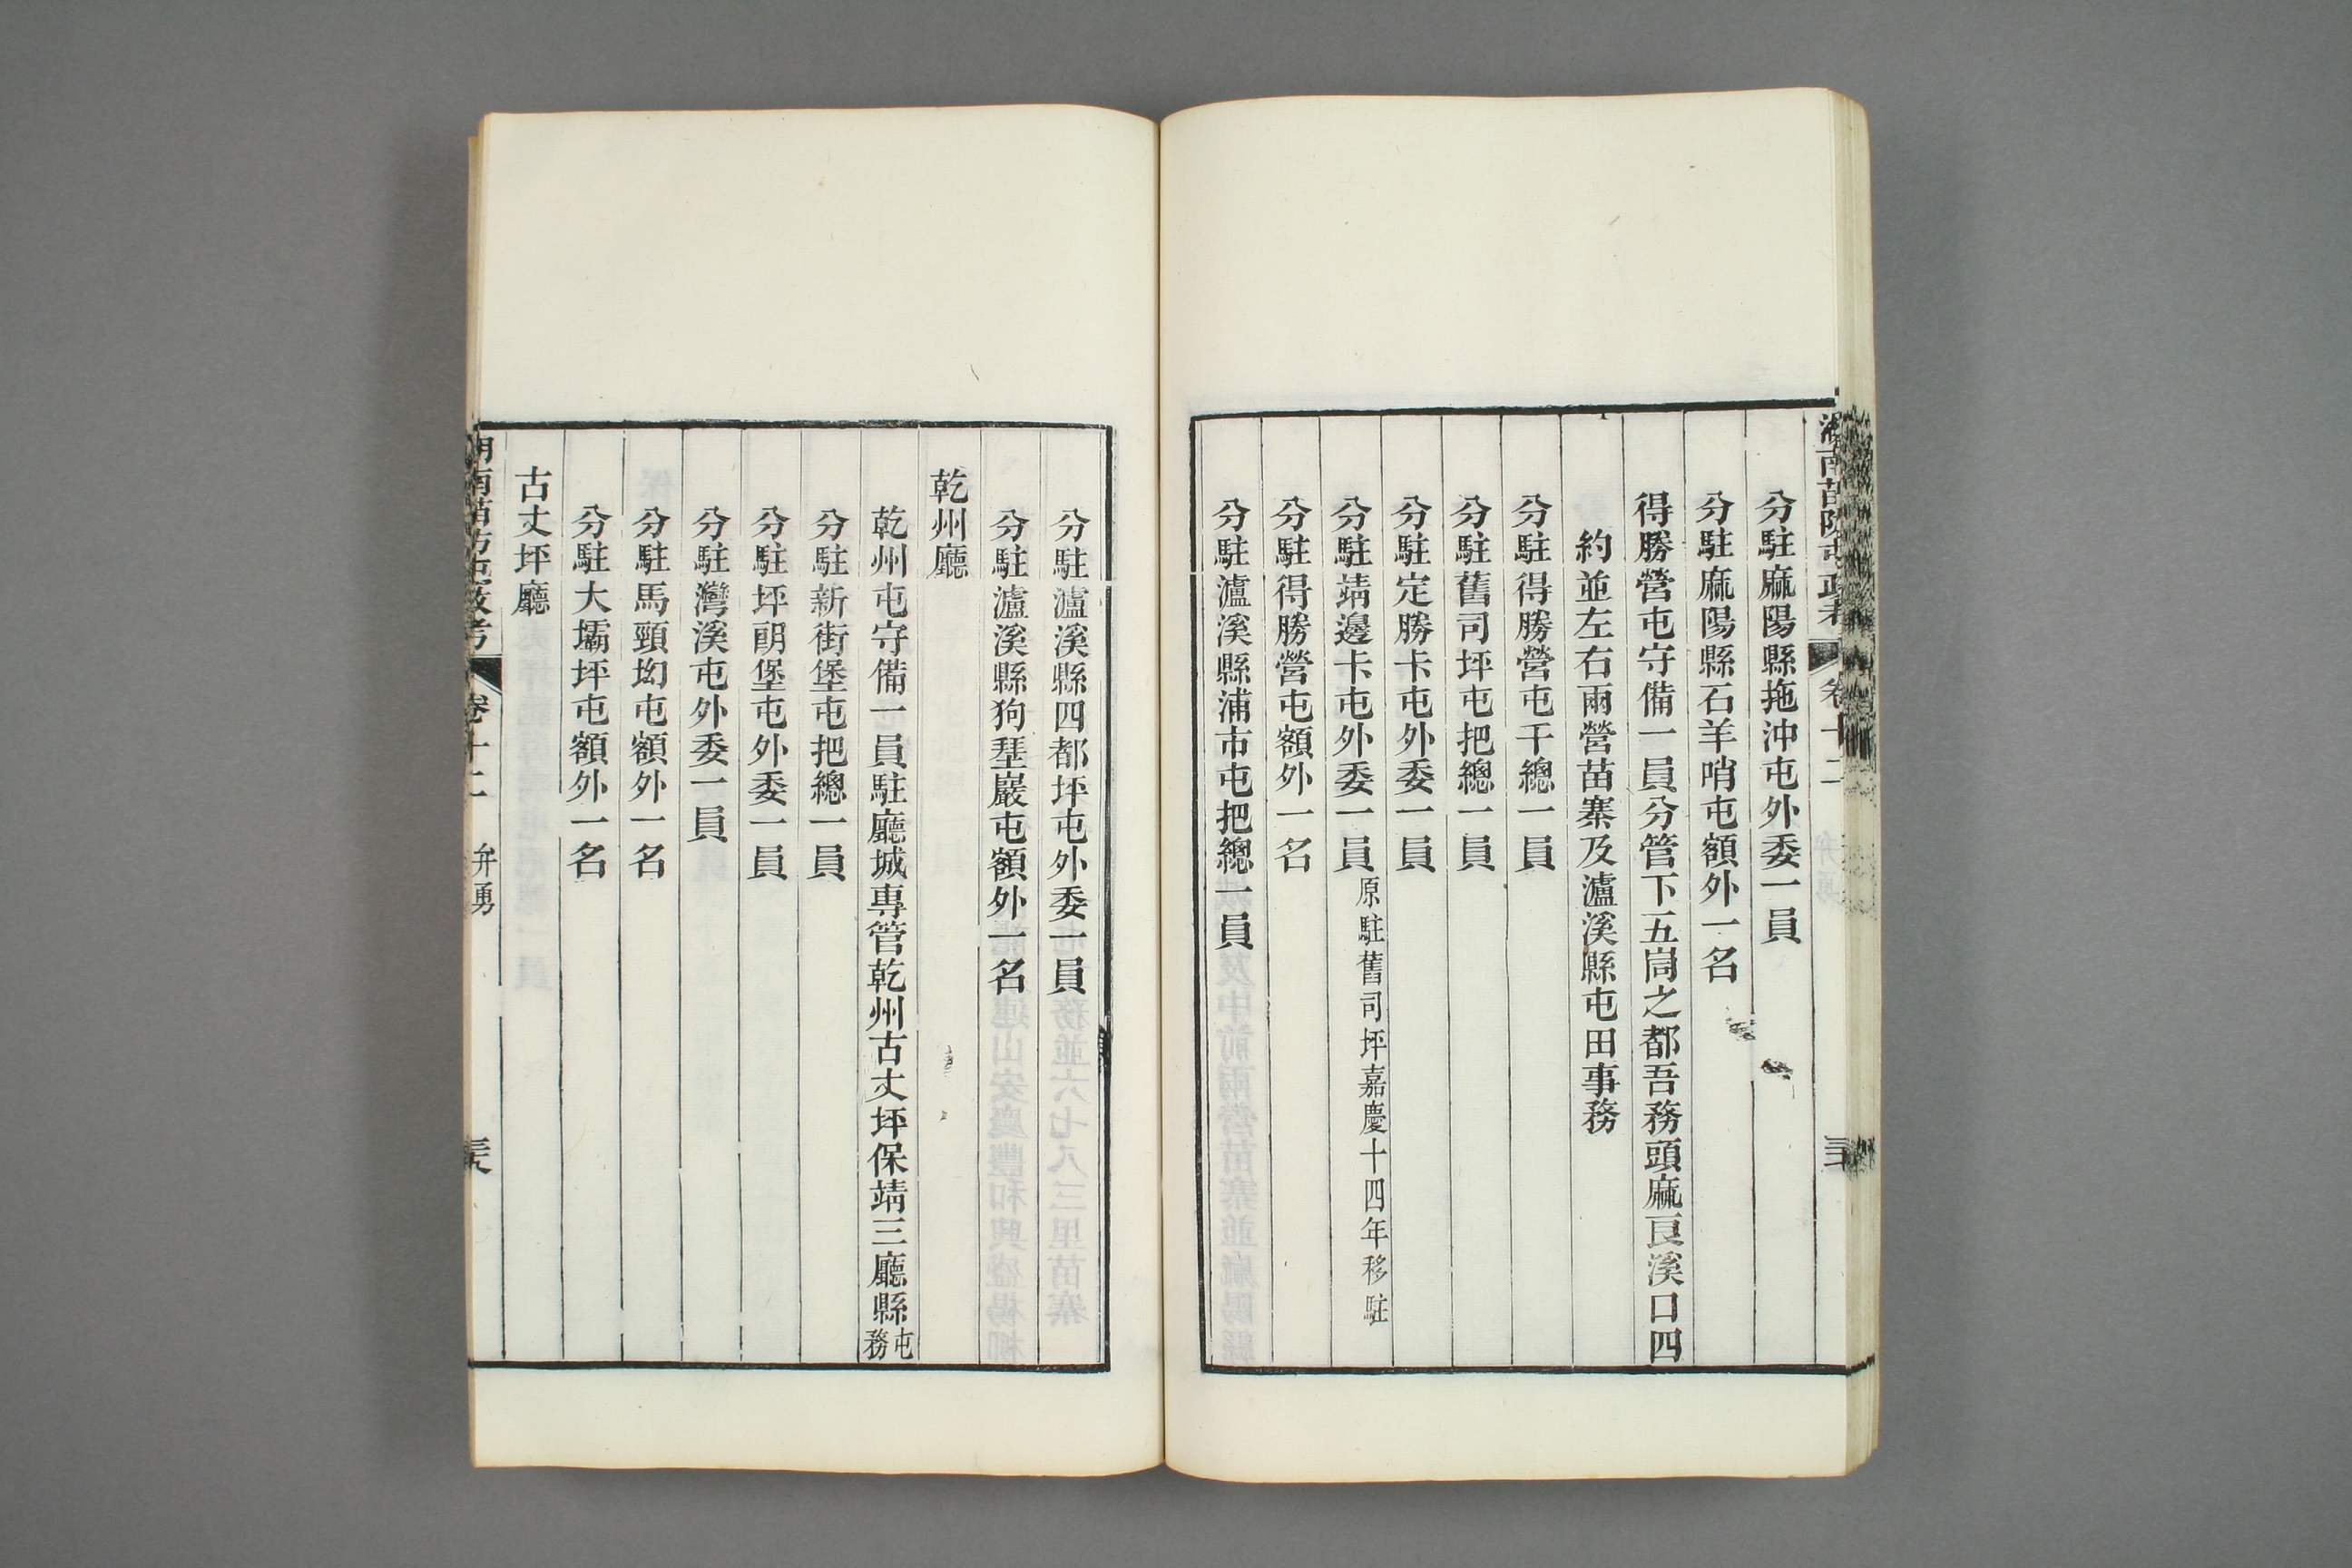 分駐麻陽縣拖沖屯外委一員
分駐麻陽縣石羊哨屯額外一名
得勝營屯守備一員分管下五峝之都吾務頭麻良溪口四
約並左右兩營苗寨及瀘溪縣屯田事務
分駐得勝營屯千總一員
分駐舊司坪屯把總一員
分駐定勝卡屯外委一員
分駐靖邊卡屯外委一員原駐舊司坪嘉慶十四年移駐
分駐得勝營屯額外一名
分駐瀘溪縣浦市屯把總一員
分駐瀘溪縣四都坪屯外委一員
分駐瀘溪縣狗巖屯額外一名
乾州廳
乾州屯守備一員駐廳城專管乾州古丈坪保靖三廳縣屯務
分駐新街堡屯把總一員
分駐坪朗堡屯外委一員
分駐灣溪屯外委一員
分駐馬頸坳屯額外一名
分駐大壩坪屯額外一名
古丈坪廳
卷十二
弁勇